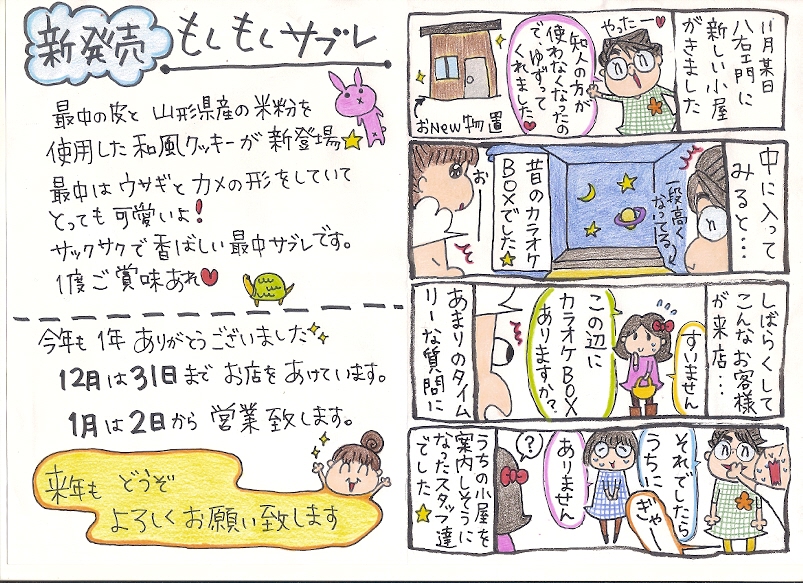 新発売
もしもしサブレ
最中の皮と山形県産の米粉を
使用した和風クッキーが新登場
最中はウサギとカメの形をしていて
とっても可愛いよ!
サックサクで香ばしい最中サブレです。
1度ご賞味あれ
今年も1年ありがとうございました
12月は31日までお店をあけています。
1月は2日から営業致します。
来年もどうぞ
よろしくお願い致します
11月某日
八右ェ門に
新しい小屋
がきました
やったー
知人の方が
使わなくなったの
でゆずって
くれました
おNew物置
中に入って
みると…
一段高く
なってる。
昔のカラオケ
BOXでした
おー
しばらくして
こんなお客様
が来店…
すいません
この辺に
カラオケBOX
ありますか?
あまりのタイム
リーな質問に
それでしたら
うちに
ぎゃー
ありません
?
うちの小屋を
案内しそうに
なったスタッフ達
でした